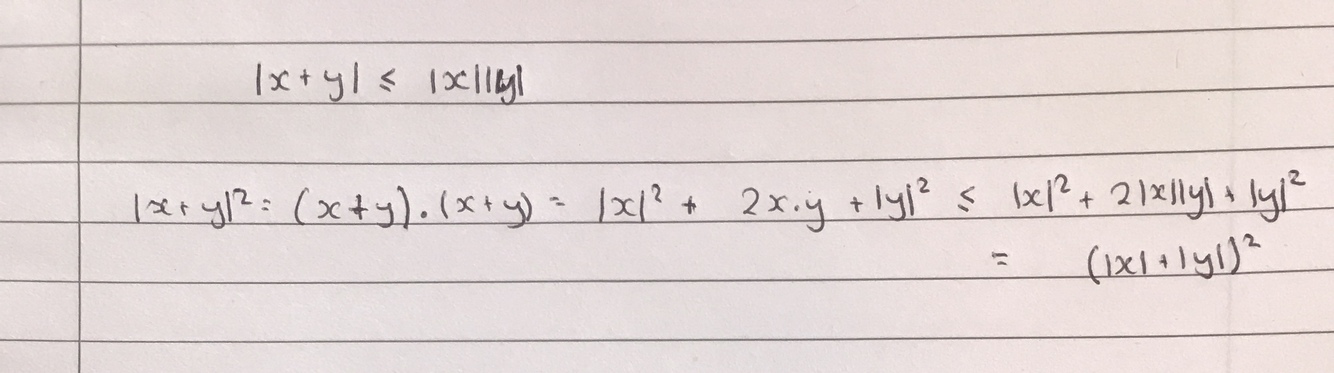 |x + y| ≤ |x||y|
|x + y|² = (x + y) . (x + y) = |x|² + 2x.y + |y|² ≤ |x|² + 2|x||y| + |y|²
= (|x| + |y|)²